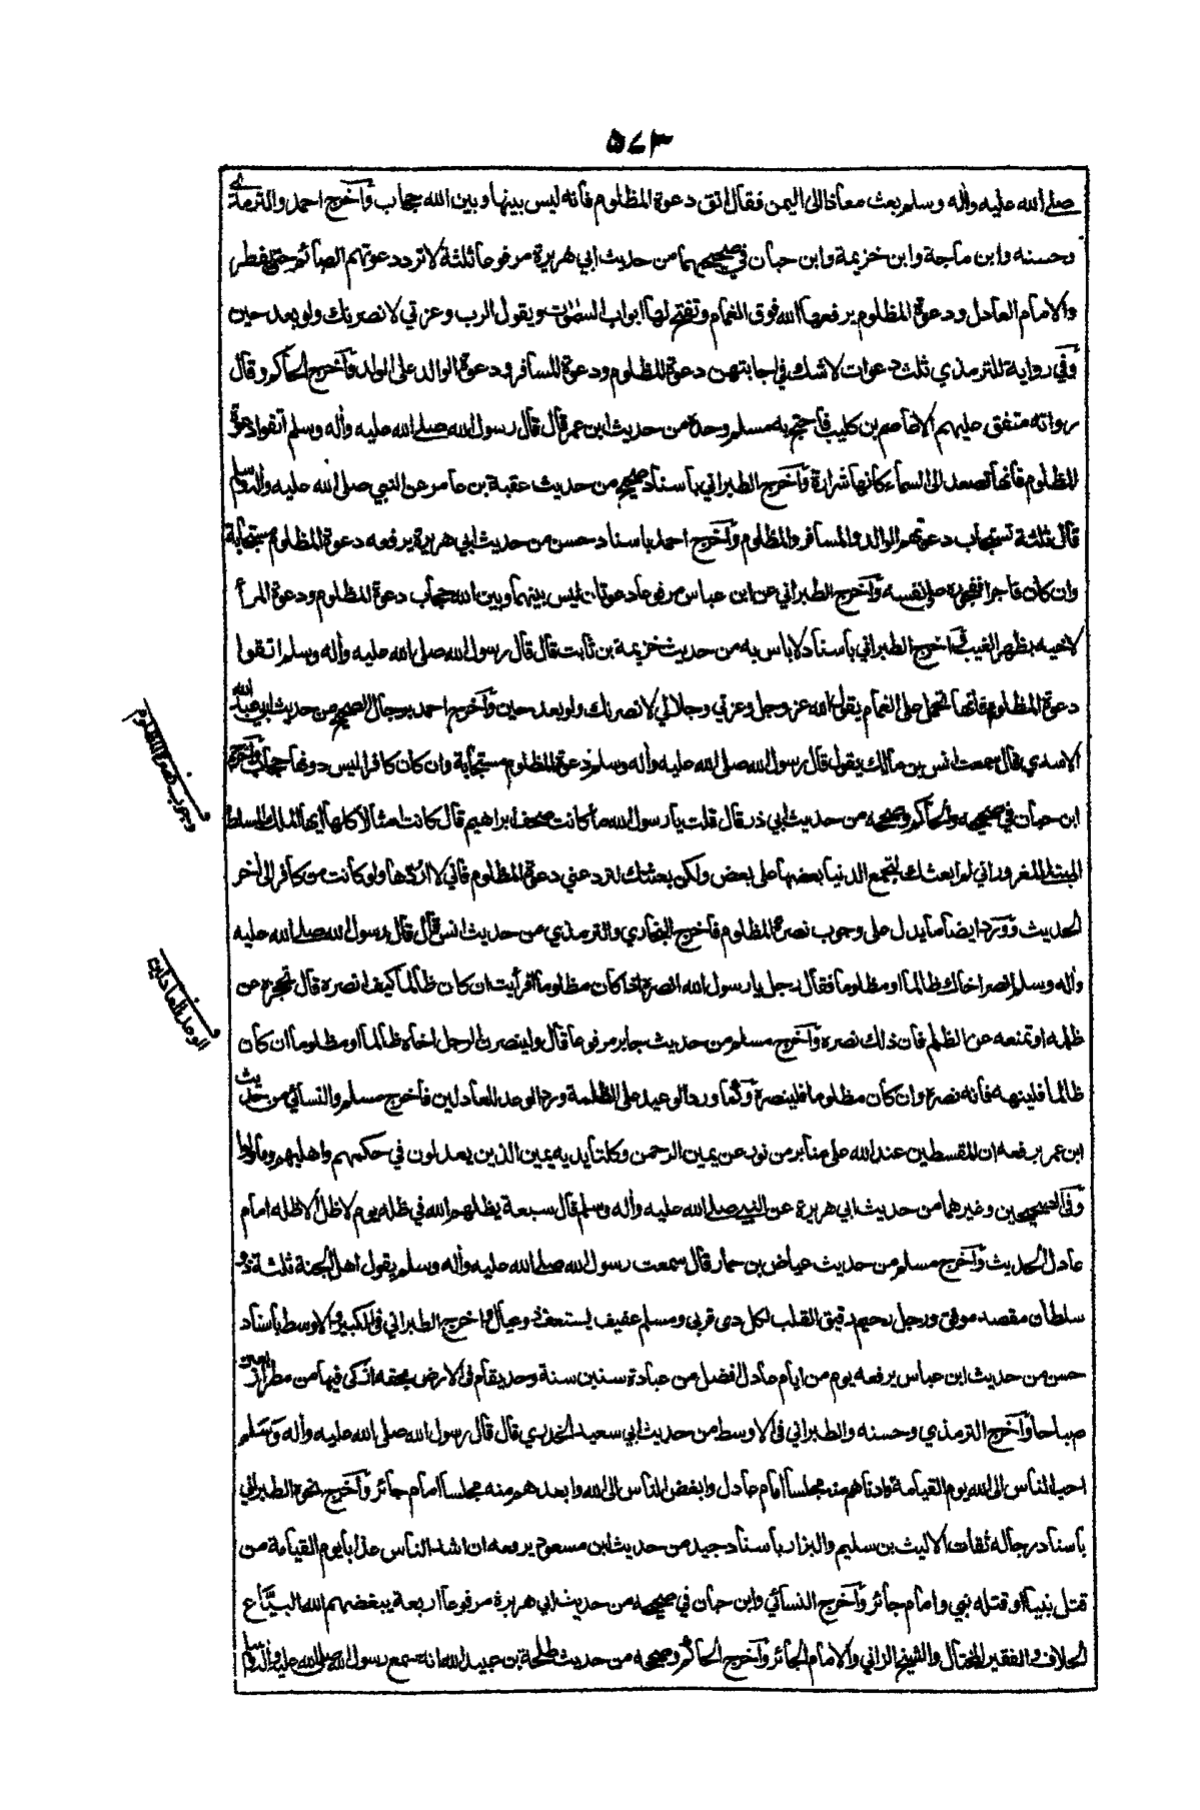 ٥٧٣
صلى الله عليه وأله وسلم بعث معاذا الى اليمن فقال اتق دعوة المظلوم فأنه ليس بينها وبين الله حجاب وأخرج احمد والترمذي
وحسنه وابن ماجة وابن خزيمة وابن حبان في صحيحيهما من حديث ابي هريرة مرفوعا ثلثة لا ترد دعوتهم الصائم حتى يفطر
والامام العادل ودعوة المظلوم يرفعها الله فوق الغمام وتفتح لها ابواب السموت ويقول الرب وعزتي لانصرنك ولو بعد حين
وفي رواية للترمذي ثلث دعوات لا شك في اجابتهن دعوة المظلوم ودعوة المسافر ودعوة الوالد على الولد وأخرج الحاكم وقال
رواته متفق عليهم الا عاصم بن كليب فاحتج به مسلم وحده من حديث ابن عمر قال قال رسول الله صلى الله عليه وأله وسلم اتقوا دعوة
المظلوم فأنها تصعد الى السماء كأنها شرارة وأخرج الطبراني بأسناد صحيح من حديث عقبة بن عامر عن النبي صلى الله عليه وأله وسلم
قال ثلثة تستجاب دعوتهم الوالد والمسافر والمظلوم وأخرج احمد باسناد حسن من حديث ابي هريرة يرفعه دعوة المظلوم مستجابة
وان كان فاجرا ففجوره على نفسه وأخرج الطبراني عن ابن عباس مرفوعا دعوتان ليس بينهما وبين الله حجاب دعوة المظلوم ودعوة المرأ
لاخيه بظهر الغيب وأخرج الطبراني بأسناد لا باس به من حديث خزيمة بن ثابت قال قال رسول الله صلى الله عليه وأله وسلم اتقوا
دعوة المظلوم فأنها تحمل على الغمام يقول الله عز وجل وعزتي وجلالي لانصرنك ولو بعد حين وأخرج احمد برجال الصحيح من حديث ابي عبد الله
الاسدي قال سمعت انس بن مالك يقول قال رسول الله صلى الله عليه وأله وسلم دعوة المظلوم مستجابة وان كان كافرا ليس دونها حجاب وأخرج
ابن حبان في صحيحه والحاكم وصححه من حديث ابي ذر قال قلت يا رسول الله ما كانت صحف ابراهيم قال كانت امثالا كلها أيها الملك المسلط
المبتلى المغرور اني لم ابعثك لتجمع الدنيا بعضها على بعض ولكن بعثتك لترد عني دعوة المظلوم فأني لا اردها ولو كأنت من كأفر الى أخر
الحديث وورد ايضا ما يدل على وجوب نصرة المظلوم فأخرج البخاري والترمذي من حديث انس قال قال رسول الله صلى الله عليه
وأله وسلم انصر اخاك ظالما او مظلوما فقال رجل يا رسول الله انصره اذا كان مظلوما أفرأيت ان كان ظالما كيف انصره قال تحجزه عن
ظلمه او تمنعه عن الظلم فان ذلك نصره وأخرج مسلم من حديث جابر مرفوعا قال ولينصرن الرجل اخاه ظالما او مظلوما ان كان
ظالما فلينهه فأنه نصرة وان كان مظلوما فلينصره وكما ورد الوعيد على الظلمة ورد الوعد للعادلين فأخرج مسلم والنسائي من حديث
ابن عمر يرفعه ان المقسطين عند الله على منابر من نور عن يمين الرحمن وكلتا يديه يمين الذين يعدلون في حكمهم واهليهم وما ولوا
وفي الصحيحين وغيرهما من حديث ابي هريرة عن النبي صلى الله عليه وأله وسلم قال سبعة يظلهم الله في ظله يوم لا ظل ألا ظله امام
عادل الحديث وأخرج مسلم من حديث عياض بن حمار قال سمعت رسول الله صلى الله عليه وأله وسلم يقول اهل الجنة ثلثة ذو
سلطان مقصد موفق ورجل رحيم رقيق القلب لكل ذى قربى ومسلم عفيف يستعفف ذو عيال وأخرج الطبراني في الكبير والاوسط بأسناد
حسن من حديث ابن عباس يرفعه يوم من ايام عادل افضل من عبادة ستين سنة وحد يقام في الارض بحقه ازكى فيها من مطر اربعين
صباحا وأخرج الترمذي وحسنه والطبراني في الاوسط من حديث ابي سعيد الخدري قال قال رسول الله صلى الله عليه وأله وسلم
احب الناس الى الله يوم القيامة وادناهم منه مجلسا امام عادل وابغض الناس الى الله وابعدهم منه مجلسا امام جائر وأخرج نحوه الطبراني
بأسناد رجاله ثقات الا ليث بن سليم والبزار بأسناد جيد من حديث ابن مسعود يرفعه ان اشد الناس عذابا يوم القيامة من
قتل نبيا او قتله نبي وامام جائر وأخرج النسائي وابن حبان في صحيحه من حديث ابي هريرة مرفوعا اربعة يبغضهم الله البياع
الحلاف والفقير المختال والشيخ الزاني والامام الجائر وأخرج الحاكم وصححه من حديث طلحة بن عبيد الله انه سمع رسول الله صلى الله عليه وأله وسلم
وجوب نصر المظلوم
الوعد للعادلين